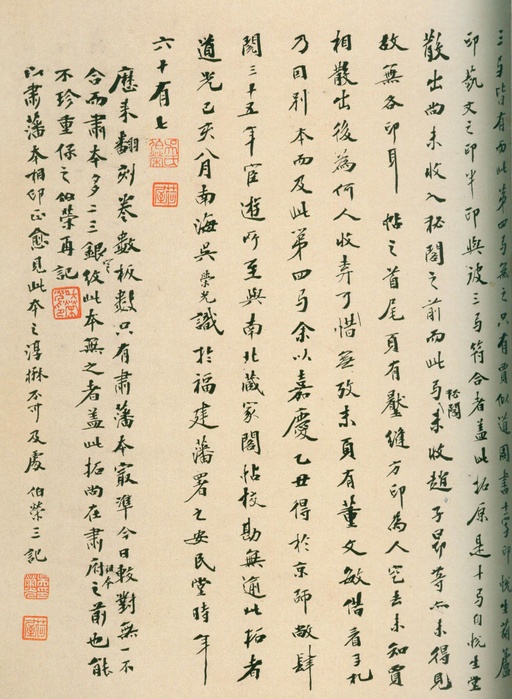 三号皆有而此第四号無之只有賈似道圖書十字印悦生葫蘆
印藝文之印半印與波三号符合者蓋此拓原是十号自悦生堂
散出尚未收入秘閣之前而此号未收趙子昻等亦未得見
秘閣
故無各印耳 帖之首尾頁有壓縫方印為人窓去未知賈
相散出後為何人收弆可惜無攷末頁有董文敏借看手札
乃目别本而及此第四号余以嘉慶乙丑得於京師敝肆
閱三十五年宦遊所至與南北藏家閣帖校勘無逾此拓者
道光己亥八月南海吳榮光識於福建藩署之安民堂時年
六十有七
歷来翻刻卷數板數只有肅藩本最準今日較對無一不
合而肅本多二三銀紋此本無之者蓋此拓尚在肅府之前也能
不珍重保之 伯榮再記
以肅藩本相印正愈見此本之淳楙不可及處 伯榮三記